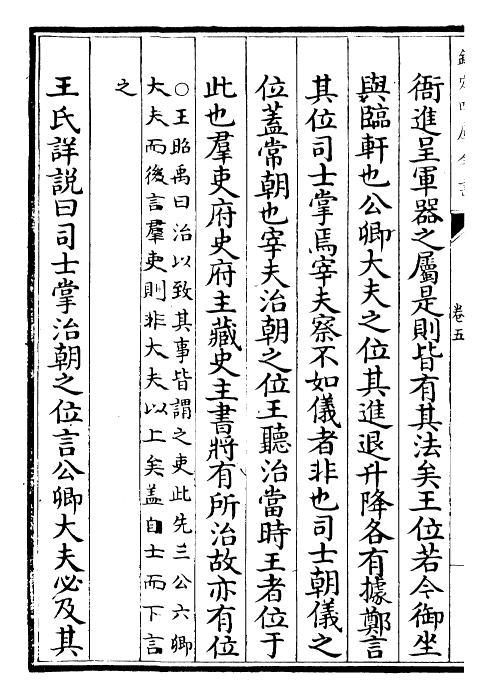 欽定四庫全書
卷五
衙進呈軍器之屬是則皆有其法矣王位若今御坐
與臨軒也公卿大夫之位其進退升降各有據鄭言
其位司士掌焉宰夫察不如儀者非也司士朝儀之
位蓋常朝也宰夫治朝之位王聽治當時王者位于
此也羣吏府史府主藏史主書將有所治故亦有位
○王昭禹曰治以致其事皆謂之吏此先三公六卿
大夫而後言羣吏則非大夫以上矣蓋自士而下言
之
王氏詳說曰司士掌治朝之位言公卿大夫必及其